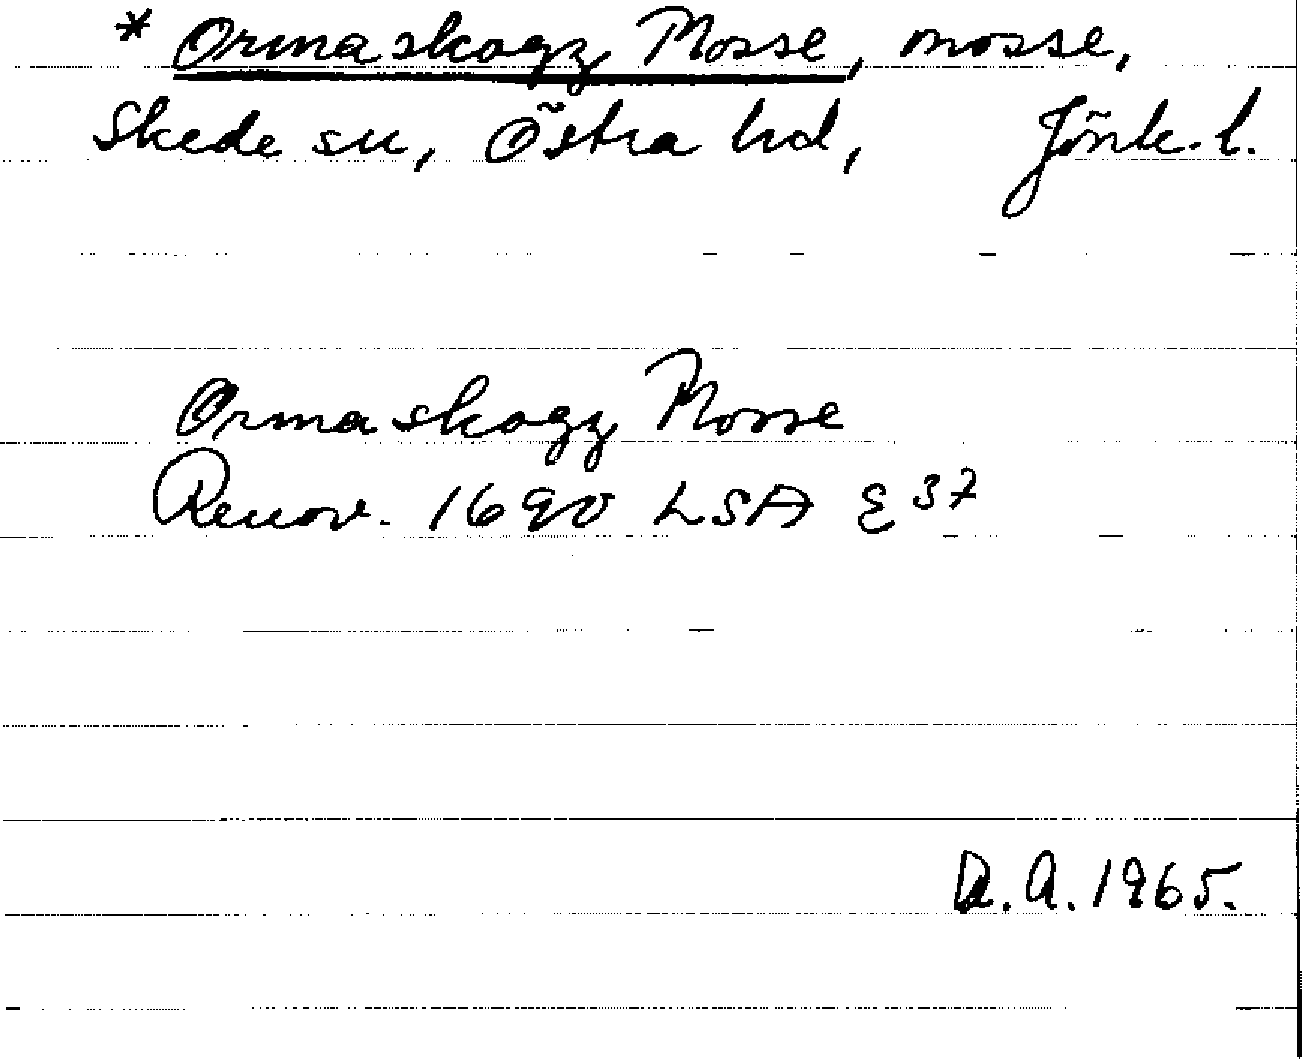 * Ormaskogz Mosse, mosse,
Skede sn, Östra hd, Jönk. l.
Ormaskogz Mosse
Renov. 1690 LSA E 37
R.A. 1965.